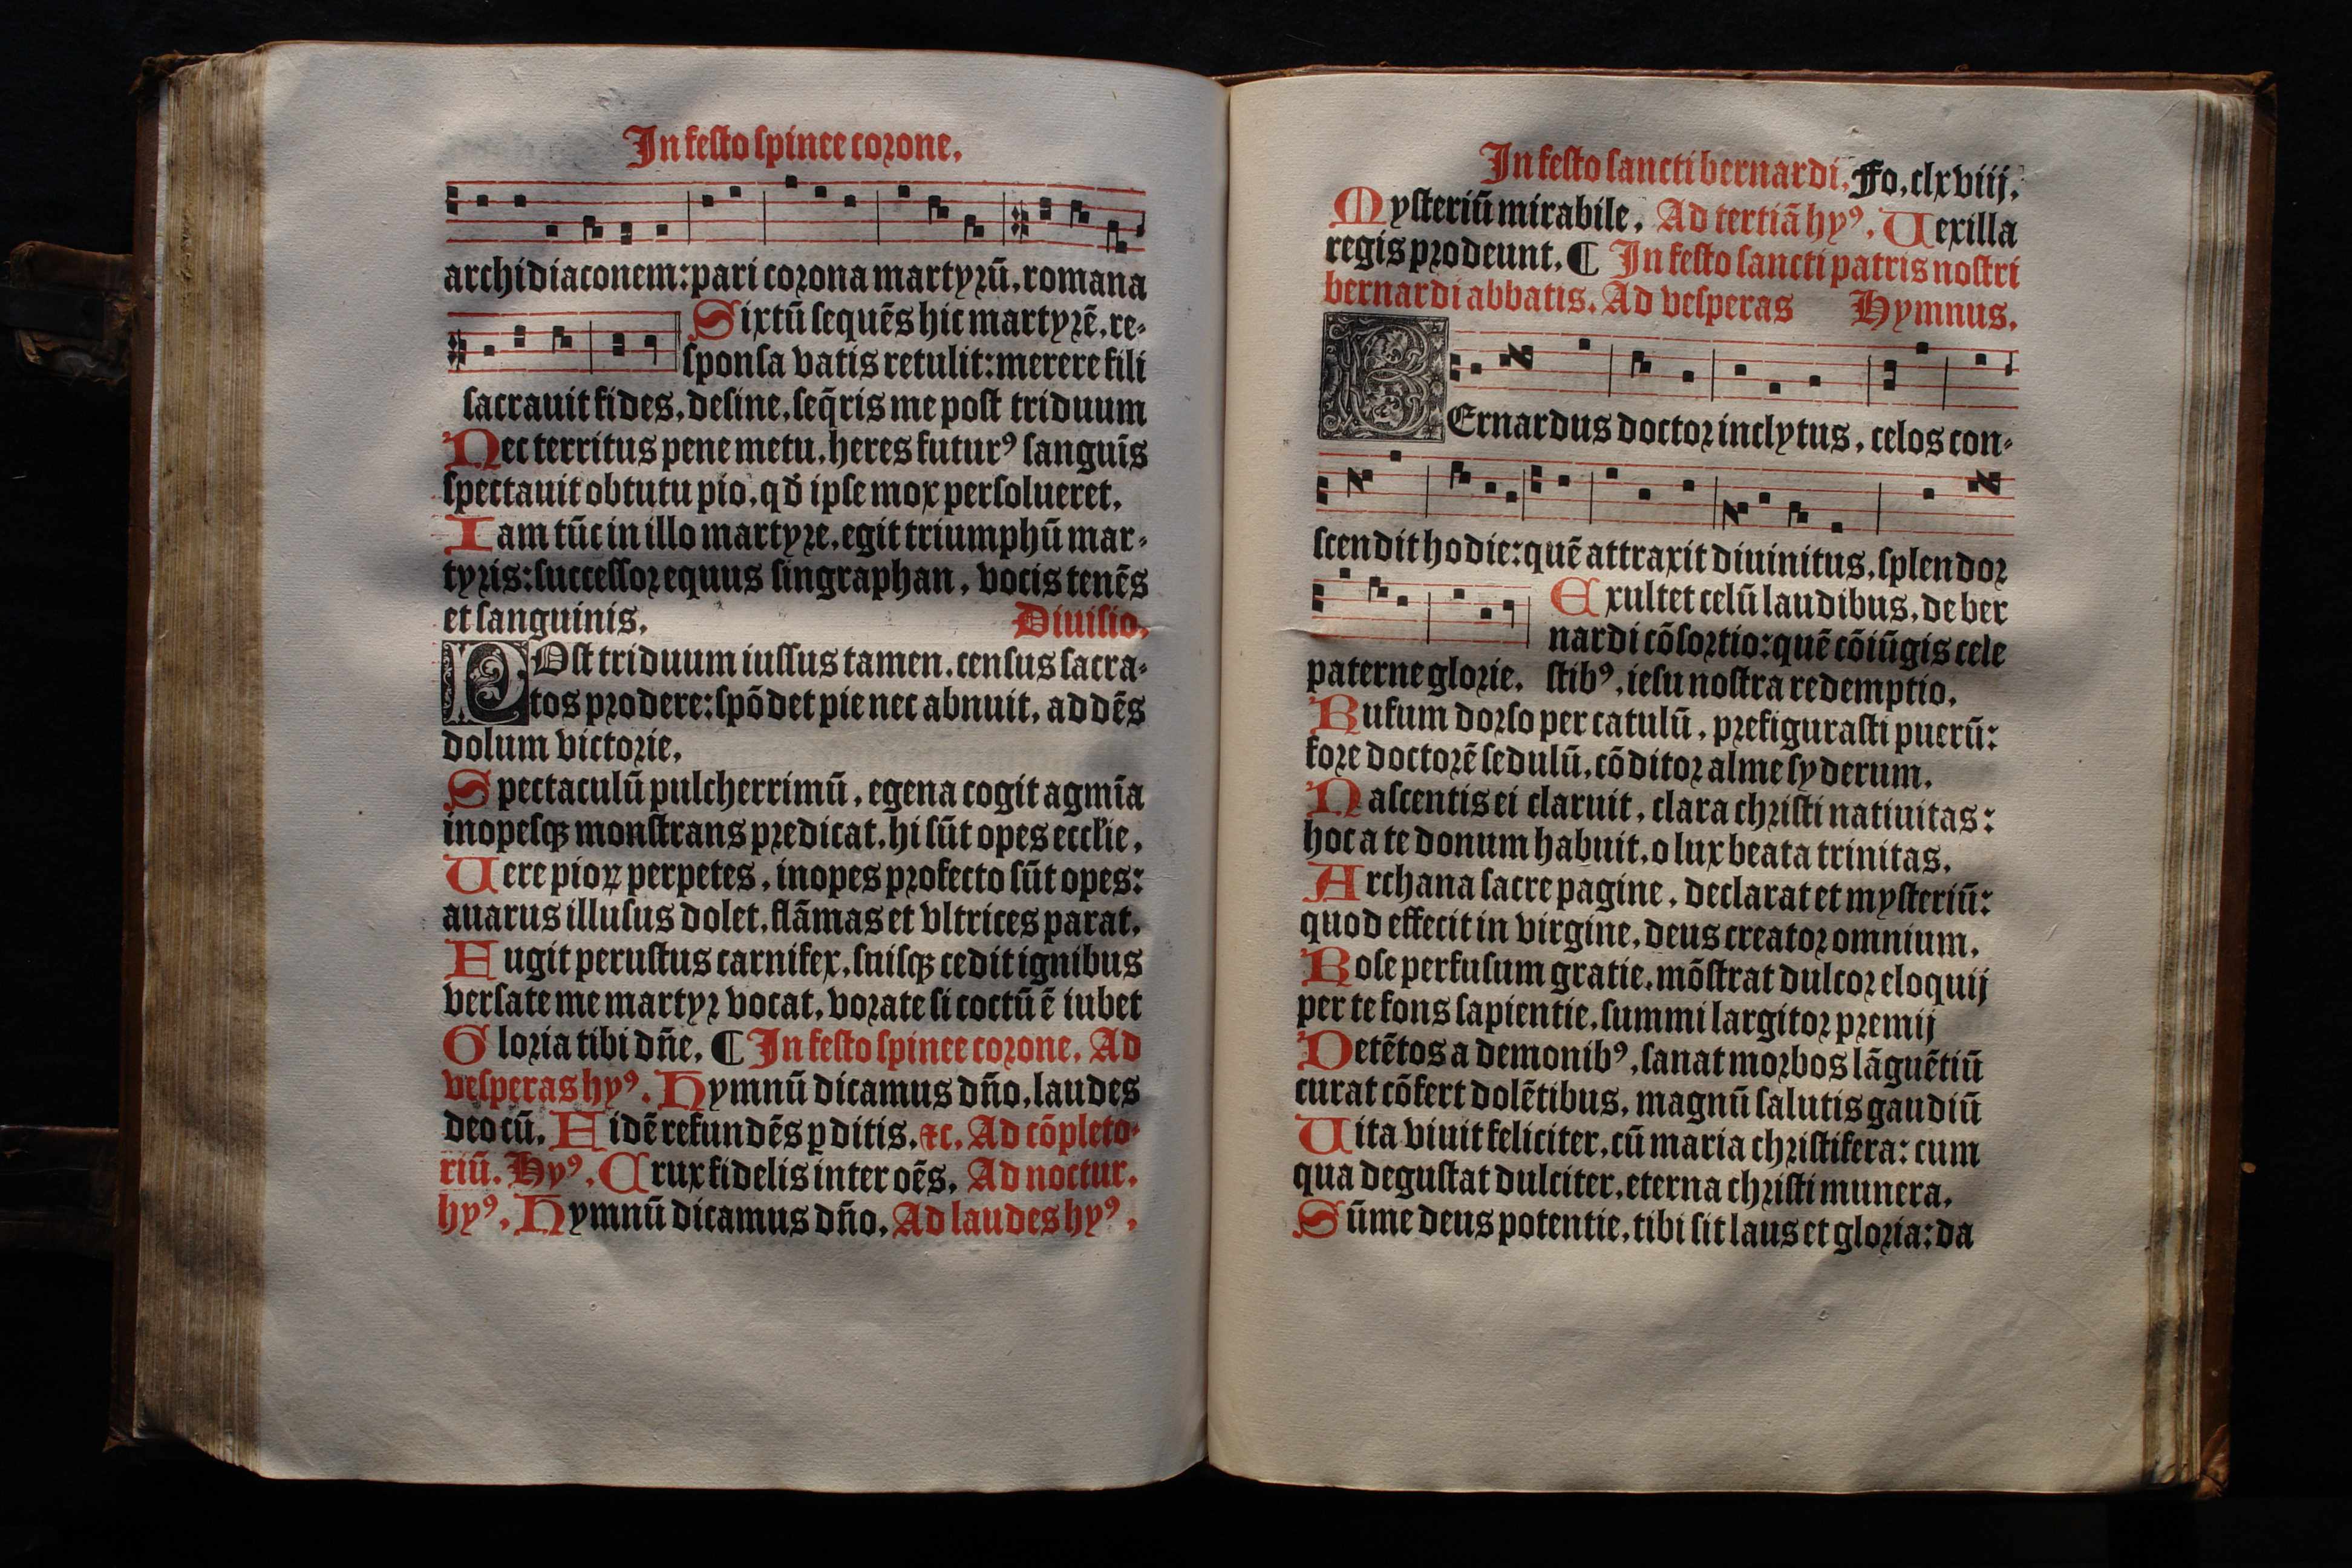 In festo spinee corone.
archidiaconem: pari corona martyrū. romana
Sixtū sequēs hic martyrē. re-
sponsa vatis retulit: merere fili
sacrauit fides. desine, seq̄ris me post triduum
Nec territus pene metu. heres futurꝰ sanguīs
spectauit obtutu pio. qđ ipse mox persolueret.
Iam tūc in illo martyre. egit triumphū mar-
tyris: successor equus singraphan. vocis tenēs
et sanguinis. Diuisio.
POst triduum iussus tamen. census sacra-
tos prodere: spōdet pie nec abnuit. addēs
dolum victorie.
Spectaculū pulcherrimū. egena cogit agmīa
inopesqꝫ monstrans predicat. hi sūt opes eccłie.
Uere pioꝝ perpetes. inopes profecto sūt opes:
auarus illusus dolet. flāmas et vltrices parat.
Fugit perustus carnifex. suisqꝫ cedit ignibus
versate me martyr vocat. vorate si coctū ē iubet
Gloria tibi dn̄e. ¶ In festo spinee corone. Ad
vesperas hyꝰ. Hymnū dicamus dn̄o. laudes
deo cū. Fidē refundēs ꝑditis. ⁊c. Ad cōpleto-
riū. Hyꝰ. Crux fidelis inter oēs. Ad noctur.
hyꝰ. Hymnū dicamus dn̄o. Ad laudes hyꝰ.
In festo sancti bernardi. Fo. clxviij.
Mysteriū mirabile. Ad tertiā hyꝰ. Uexilla
regis prodeunt. ¶ In festo sancti patris nostri
bernardi abbatis. Ad vesperas Hymnus.
BErnardus doctor inclytus. celos con-
scendit hodie: quē attraxit diuinitus. splendor
Exultet celū laudibus. de ber
nardi cōsortio: quē cōiūgis cele
paterne glorie. stibꝰ. iesu nostra redemptio.
Rufum dorso per catulū. prefigurasti puerū:
fore doctorē sedulū. cōditor alme syderum.
Nascentis ei claruit. clara christi natiuitas:
hoc a te donum habuit. o lux beata trinitas.
Archana sacre pagine. declarat et mysteriū:
quod effecit in virgine. deus creator omnium.
Rose perfusum gratie. mōstrat dulcor eloquij
per te fons sapientie. summi largitor premij
Detētos a demonibꝰ. sanat morbos lāguētiū
curat cōfert dolētibus. magnū salutis gaudiū
Uita viuit feliciter. cū maria christifera: cum
qua degustat dulciter. eterna christi munera.
Sūme deus potentie. tibi sit laus et gloria: da